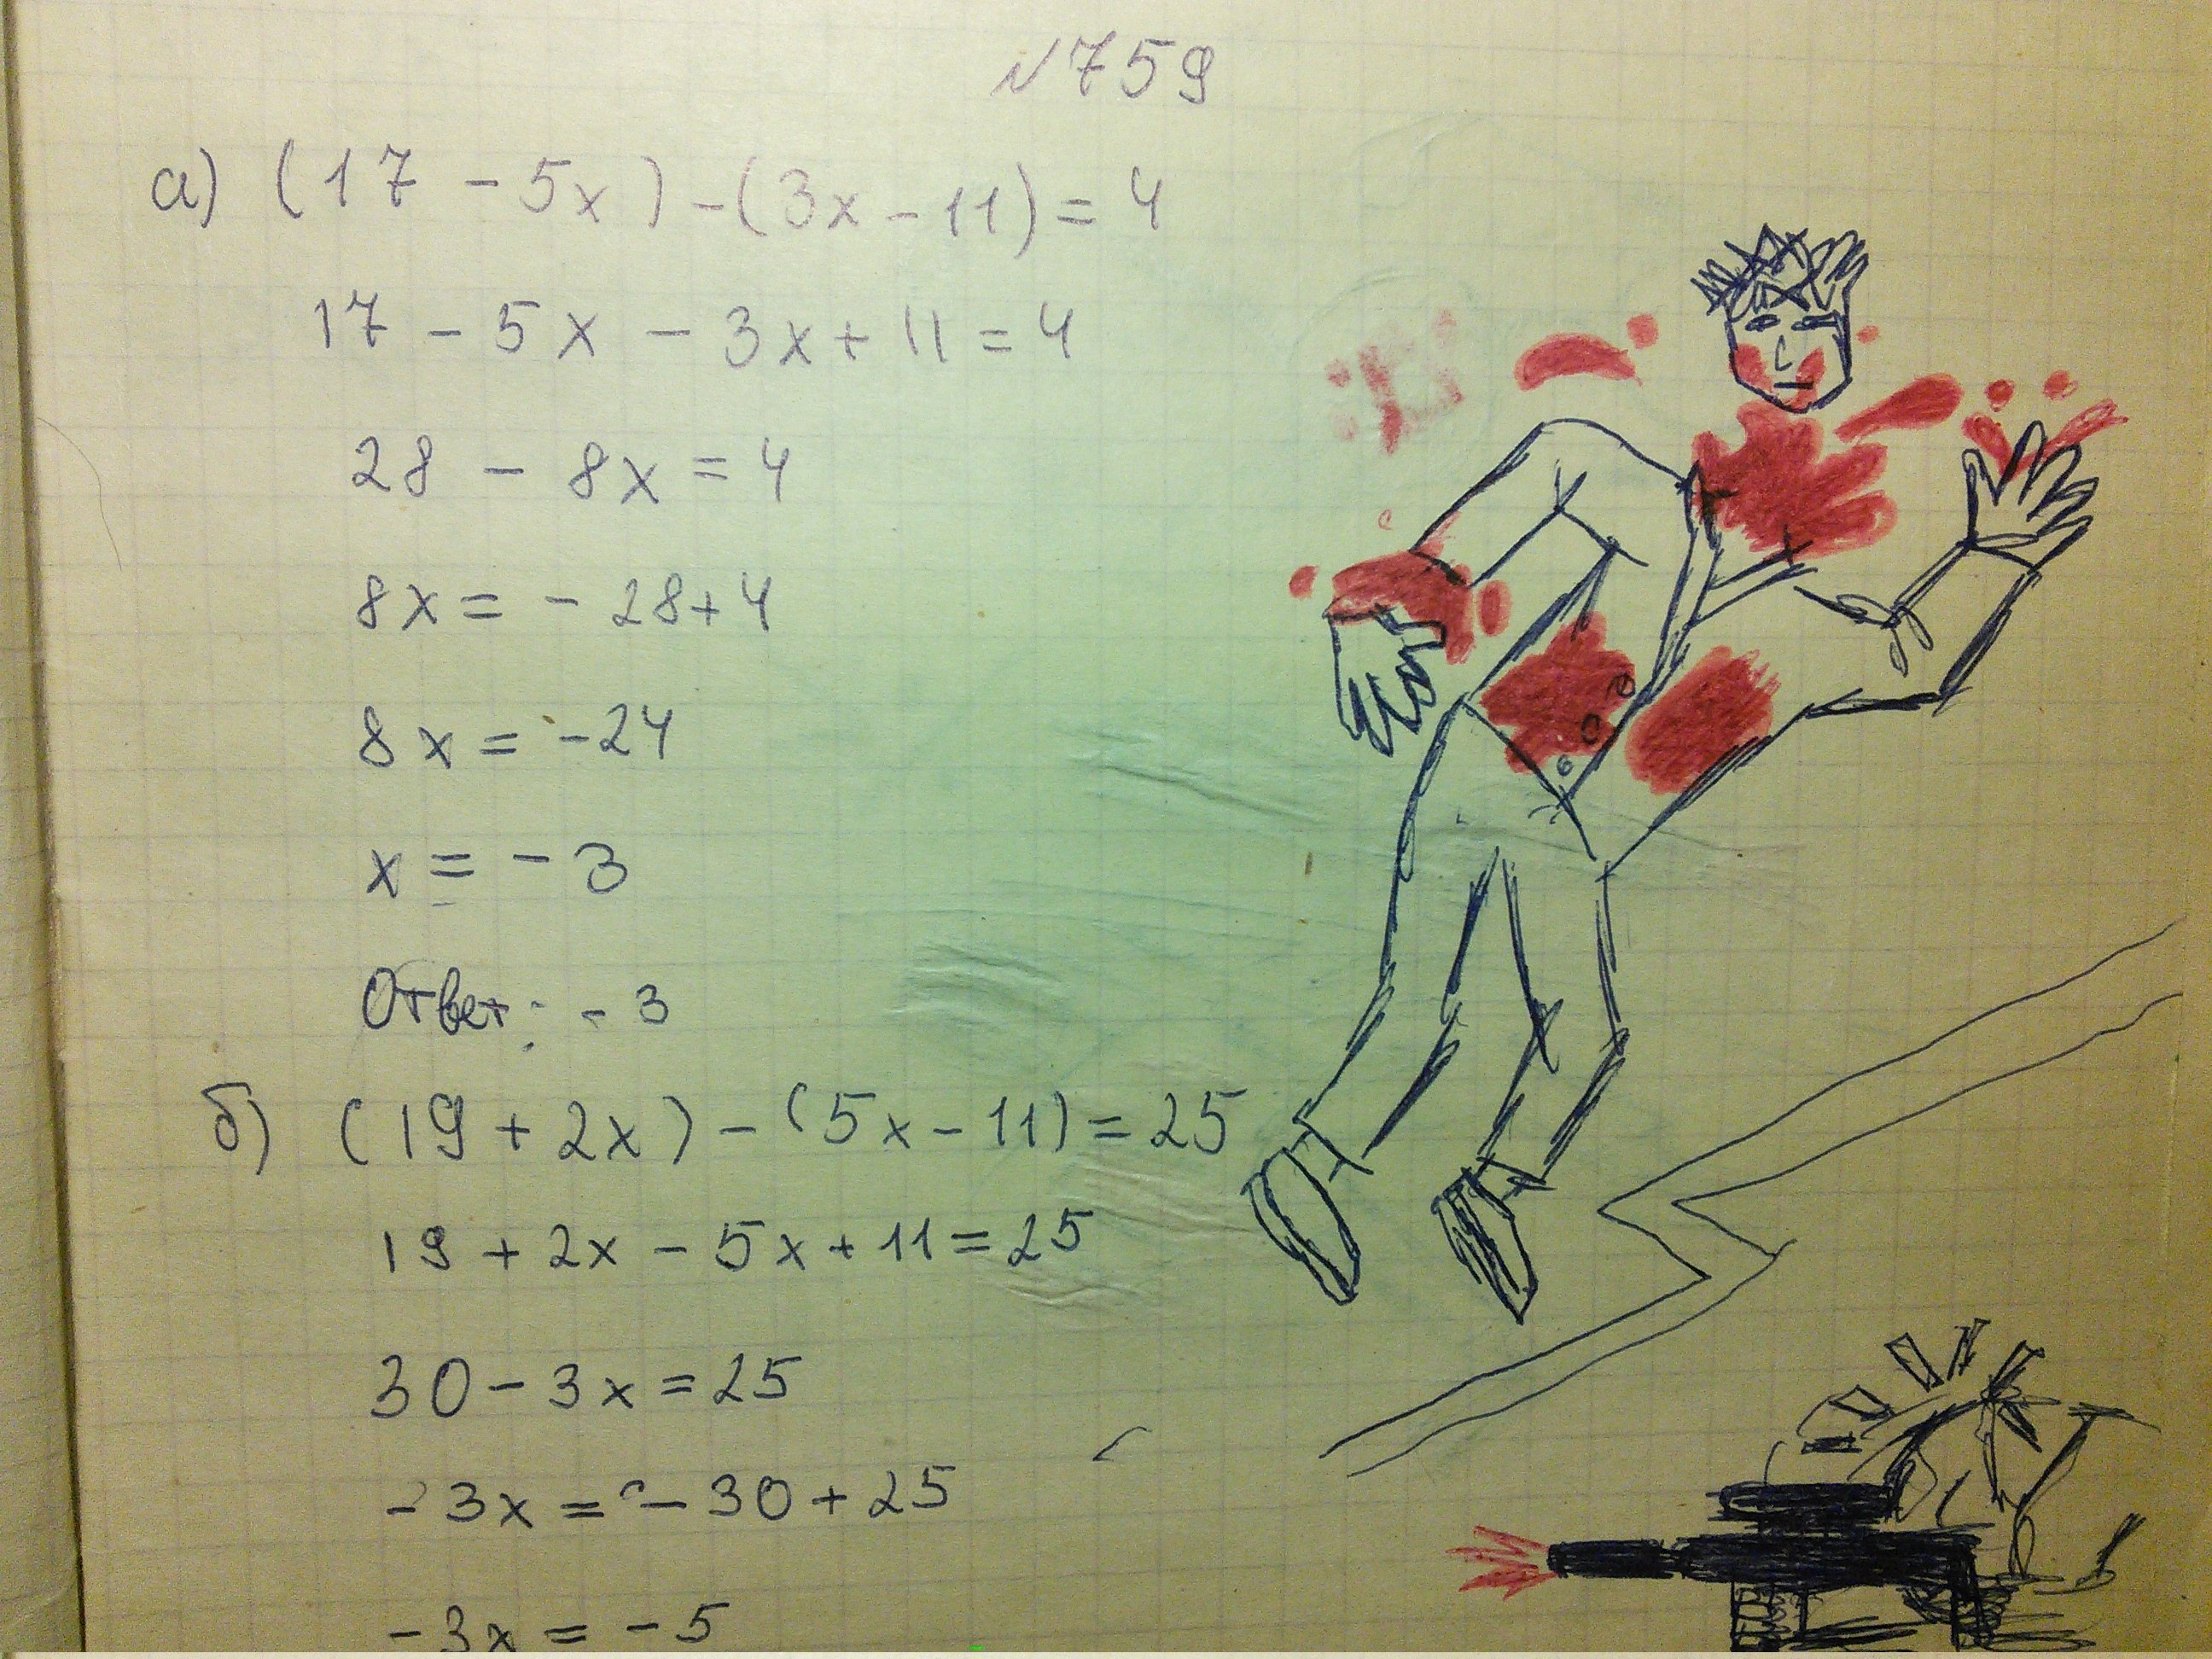 №759
а) (17 - 5x) - (3x - 11) = 4
17 - 5x - 3x + 11 = 4
28 - 8x = 4
8x = - 28 + 4
8x = -24
x = - 3
Ответ: - 3
б) (19 + 2x) - (5x - 11) = 25
19 + 2x - 5x + 11 = 25
30 - 3x = 25
- 3x = - 30 + 25
- 3x = - 5